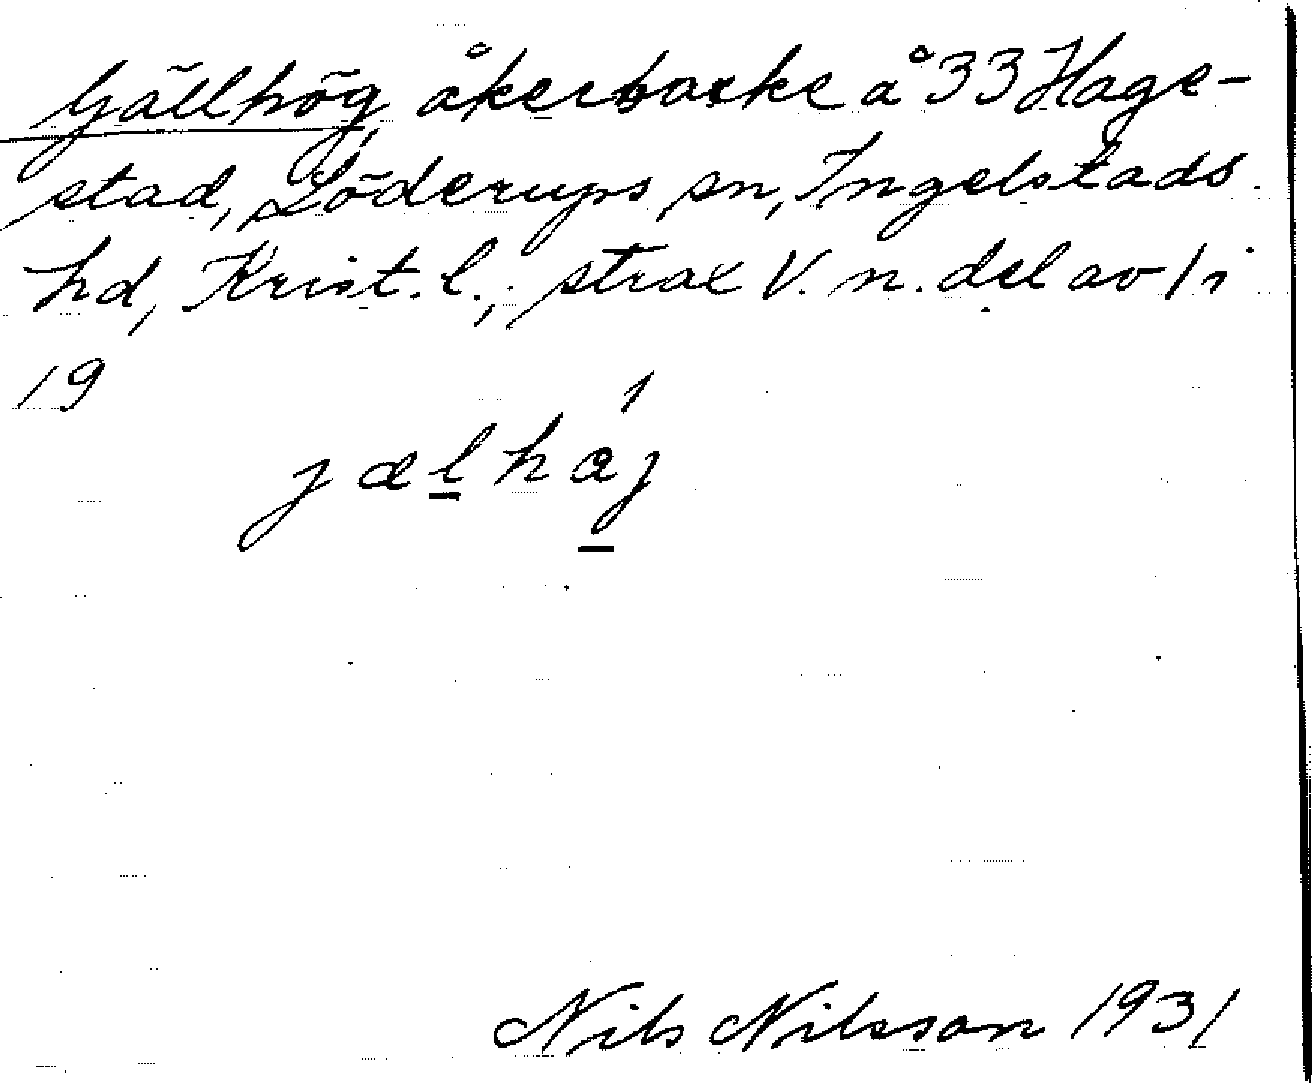 Gällhög, åkerbacke å 33 Hage-
stad, Löderups sn, Ingelstads
hd, Krist. l.; strax V. n. del av 1 i
19
jælhaj
Nils Nilsson 1931